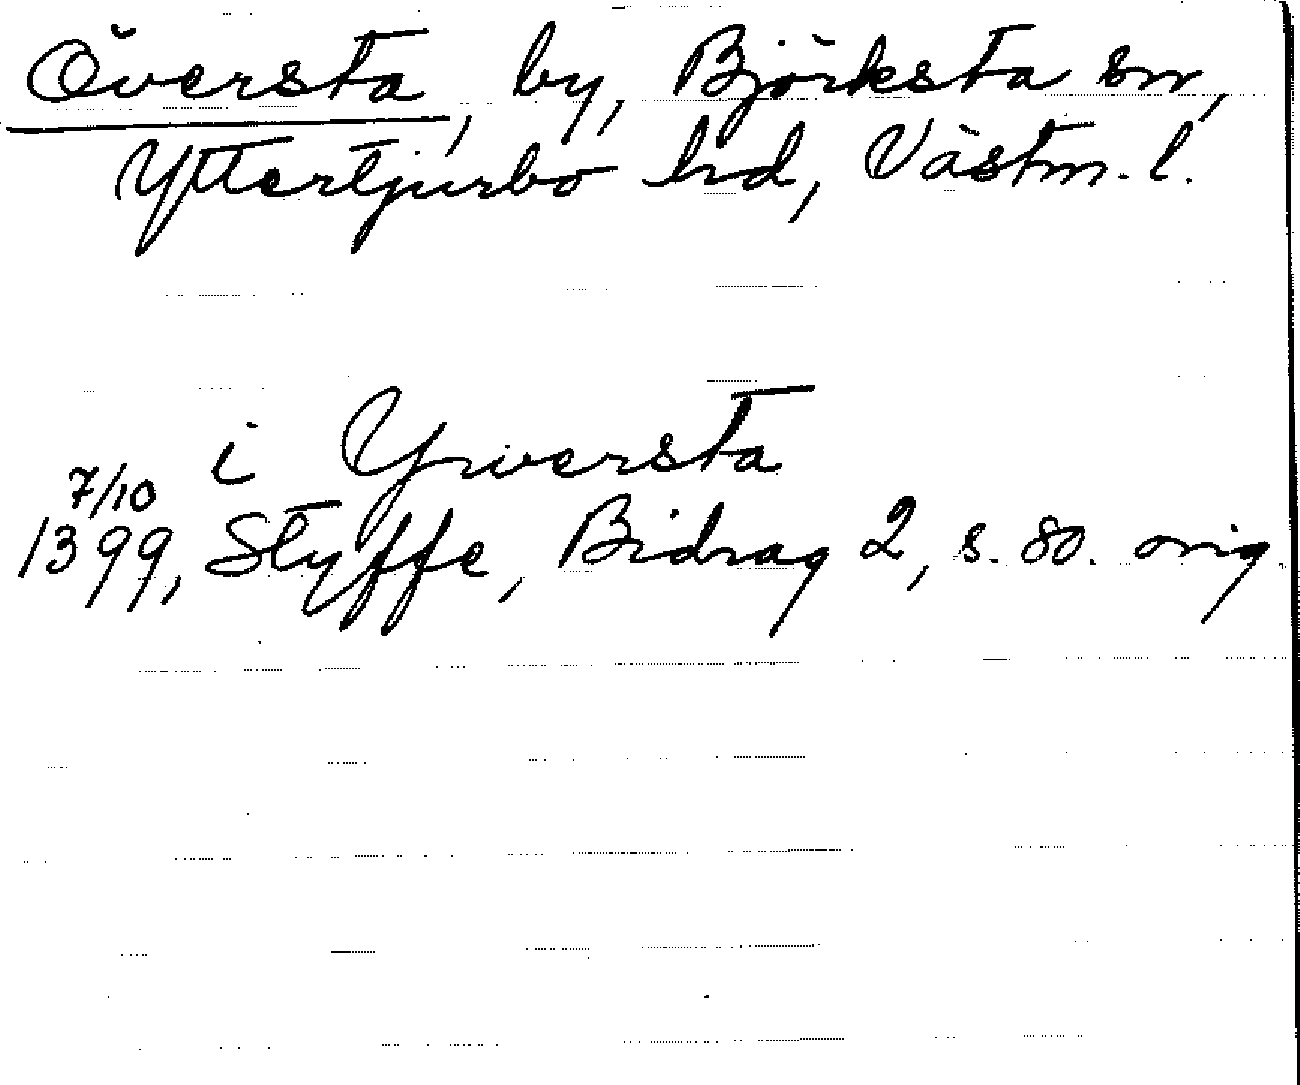 Översta, by, Björksta sn,
Yttertjurbo hrd, Västm. l.
i Yversta
7/10
1399, Styffe, Bidrag 2, s. 80. orig.